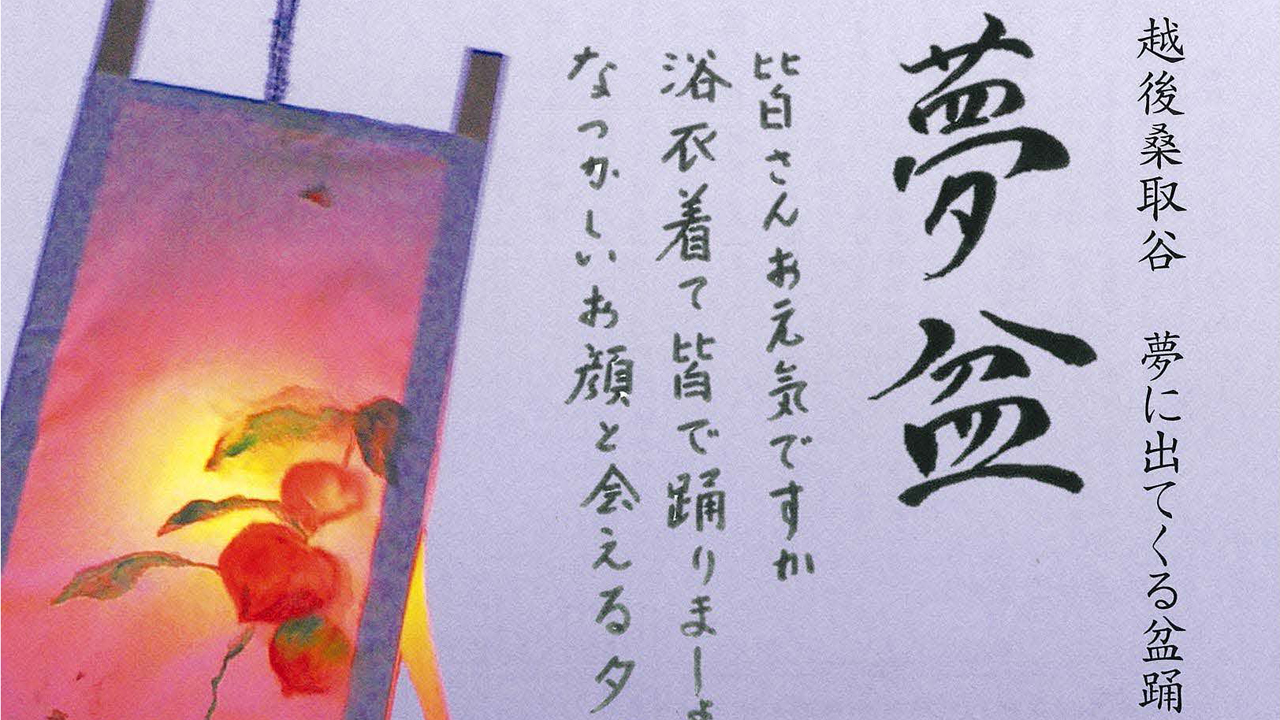 越後桑取谷　夢に出てくる盆踊
夢盆
皆さんお元気ですか
浴衣着て皆で踊りましょ
なつかしいお顔と会える夕